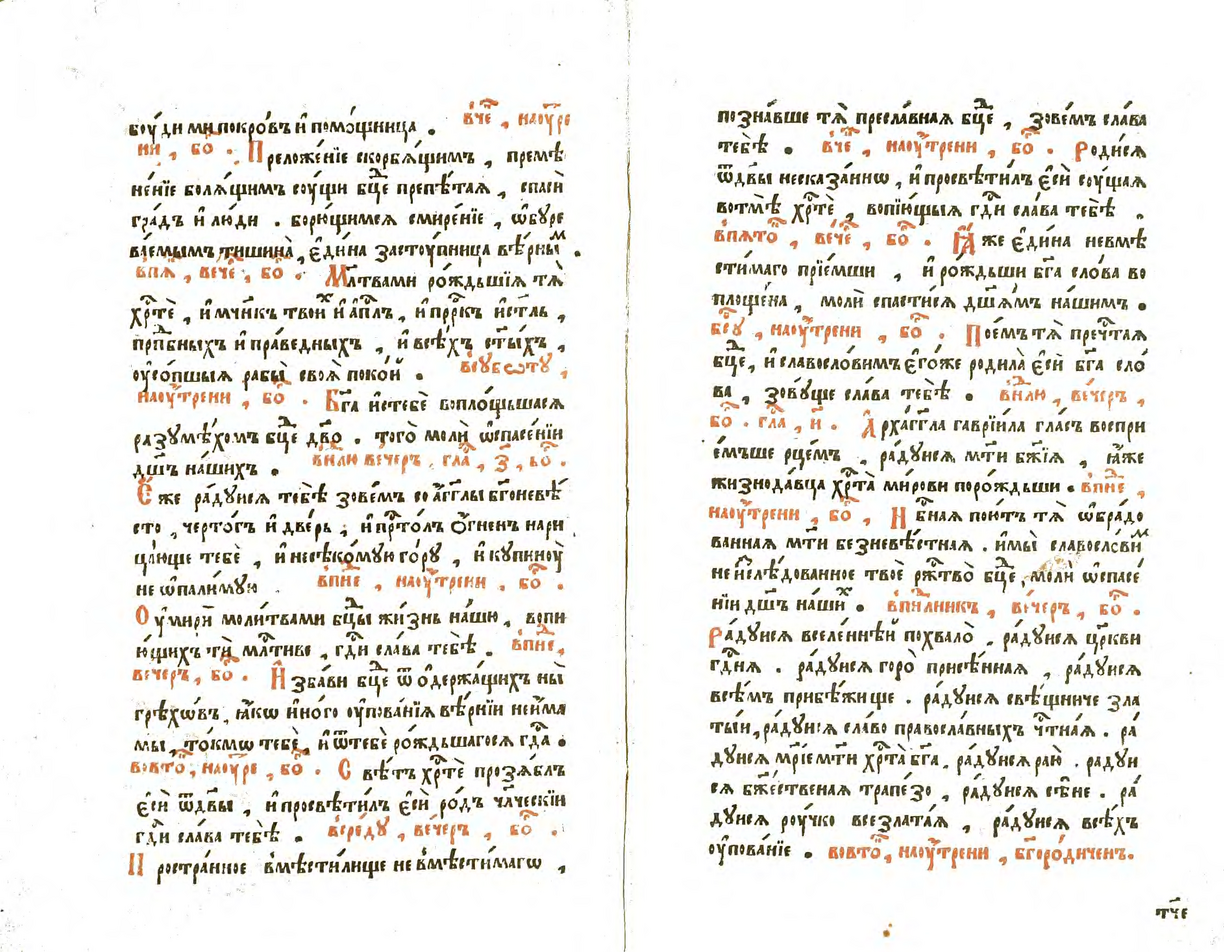 боу́ди ми покро́въ и҆ помо́щница . в̾че҃ , наоу҆́тре
ни , бо҃ . Преложе́нїе скорбѧ́щимъ , премѣ
не́нїе болѧ́щимъ соу́щи бц҃е препѣ́таѧ , спаси̑
гра́дъ и҆ лю́ди . борю́щимсѧ смире́нїе , ѡ҆буре
ва́емымъ тишина̀ , є҆ди́на застоу́пница вѣ́рны м .
в̾пѧ , ве́че , бо҃ . Мл҃твами ро́ждьшїѧ тѧ̀
хр҃тѐ , и҆ мч҃нкъ твои х и҆ а҆пл҃ъ , и҆ прр҃къ и҆ ст҃ль ,
прп҃бныхъ и҆ пра́ведныхъ , и҆ всѣ́хъ ст҃ы́хъ ,
оу҆со́пшыѧ рабы̀ своѧ̀ поко́й . всу́бѡту ,
наоу҆́трени , бо҃ . Бг҃а и҆с̾тебѐ вопло́щьшасѧ
разумѣ́хомъ бц҃е дв҃о . того̀ молѝ ѡ҆спасе́нїи
дш҃ъ на́шихъ . в̾нлю ве́черъ , гла҃ , з҃ , бо҃ .
Е҆́же ра́дуисѧ тебѣ̀ зове́мъ со а҆́гг҃лы бг҃оневѣ́
сто , черто́гъ и҆ две́рь , и҆ прт҃о́лъ ѻ҆́гненъ нари
ца́юще тебѐ , и҆ несѣко́мую го́ру , и҆ купиноу̀
не ѡ҆пали́мую . в̾пне , наоу҆́трени , бо҃ .
Оу҆мирѝ моли́твами бц҃ы жи́знь на́шю , вопи
ю́щихъ тѝ мл҃тиве , гд҃и сла́ва тебѣ̀ . в̾пне ,
ве́черъ , бо҃ . И҆збави бц҃е ѿ ѻ҆держа́щихъ ны̀
грѣхѡ́въ , ꙗ҆́кѡ и҆но́го оу҆пова́нїѧ вѣ́рнїи не и҆́ма
мы , то́кмѡ тебѐ , и҆ ѿтебѐ ро́ждьшагосѧ гд҃а .
вовто҃ , наоу҆́тре , бо҃ . Свѣ́тъ хр҃тѐ прозѧ́блъ
є҆сѝ ѿдв҃ы , и҆ просвѣти́лъ є҆сѝ ро́дъ чл҃ческїи
гд҃и сла́ва тебѣ̀ . всре́ду , ве́черъ , бо҃ .
Простра́нное в̾мѣсти́лище не в̾мѣсти́магѡ ,
позна́вше тѧ̀ пресла́внаѧ бц҃е , зове́мъ сла́ва
тебѣ̀ . в̾че҃ , наоу҆́трени , бо҃ . Роди́сѧ
ѿдв҃ы несказа́ннѡ , и҆ просвѣти́лъ є҆сѝ соу́щаѧ
вотмѣ̀ хр҃тѐ , вопїю́щыѧ гд҃и сла́ва тебѣ̀ .
в̾пѧто҃ , ве́че҃ , бо҃ . Ꙗ҆́же є҆ди́на невмѣ
сти́маго прїе́мши , и҆ ро́ждьши бг҃а сло́ва во
площе́на , молѝ спасти́сѧ дш҃а́мъ на́шимъ .
всу҃ , наоу҆́трени , бо҃ . Пое́мъ тѧ̀ преч҃таѧ
бц҃е , и҆ славосло́вимъ є҆го́же родила̀ є҆сѝ бг҃а сло́
ва , зову́ще сла́ва тебѣ̀ . в̾нлю , ве́черъ ,
бо҃ . гла҃ , и҃ . А҆рха́гг҃ла гаврїи́ла гла́съ воспрїи
е́мъше рце́мъ , ра́дуисѧ мт҃и бж҃їѧ , ꙗ҆́же
жизнода́вца хр҃та̀ ми́рови поро́ждьши . в̾пне ,
наоу҆́трени , бо҃ , Нб҃наѧ пою́тъ тѧ̀ ѡ҆бра́до
ваннаѧ мт҃и безневѣ́стнаѧ . и҆ мы̀ славосло́ви м
не и҆слѣ́дованное твоѐ рж҃тво̀ бц҃е , молѝ ѡ҆спасе́
нїи дш҃ъ на́ши х . в̾пнлникъ , ве́черъ , бо҃ .
Ра́дуисѧ вселе́ннѣй похвало̀ . ра́дуисѧ цр҃кви
гд҃нѧ . ра́дуисѧ горо̀ присѣ́ннаѧ , ра́дуисѧ
всѣ́мъ прибѣ́жище . ра́дуисѧ свѣ́щниче зла
ты́и , ра́дуисѧ сла́во правосла́вныхъ ч҃тнаѧ . ра́
дуисѧ мр҃їе мт҃и хр҃та̀ бг҃а . ра́дуисѧ раю̀ . ра́дуи
сѧ бж҃е́ственаѧ трапе́зо , ра́дуисѧ сѣ́не . ра́
дуисѧ роу́чко всезлата́ѧ , ра́дуисѧ всѣ́хъ
оу҆пова́нїе . вовто҃ , наоу҆́трени , бг҃оро́диченъ .
тч҃е